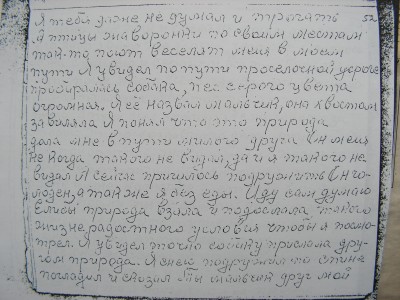 Я тебя даже не думал и трогать 52
А птицы жаворонки по своим местам
так-то поют веселят меня в моем
пути Я увидел по пути проселочной дороге
пробиралась собака, пес серого цвета
огромная. Я её назвал мальчик, она хвостом
завиляла Я понял что это природа
дала мне в пути милого друга Он меня
не когда такого не видал да и я такого не
видал Я сейчас пришлось подружить Он го-
лоден, а так же я без еды. Иду сам думаю
Ели бы природа взяла и подослала такого
жизнерадостного условия чтобы я посмо-
трел. Я увидел точно собаку прислала дру-
гом природа. Я с ней подружил по спине
погладил и сказал Ты мальчик друг мой